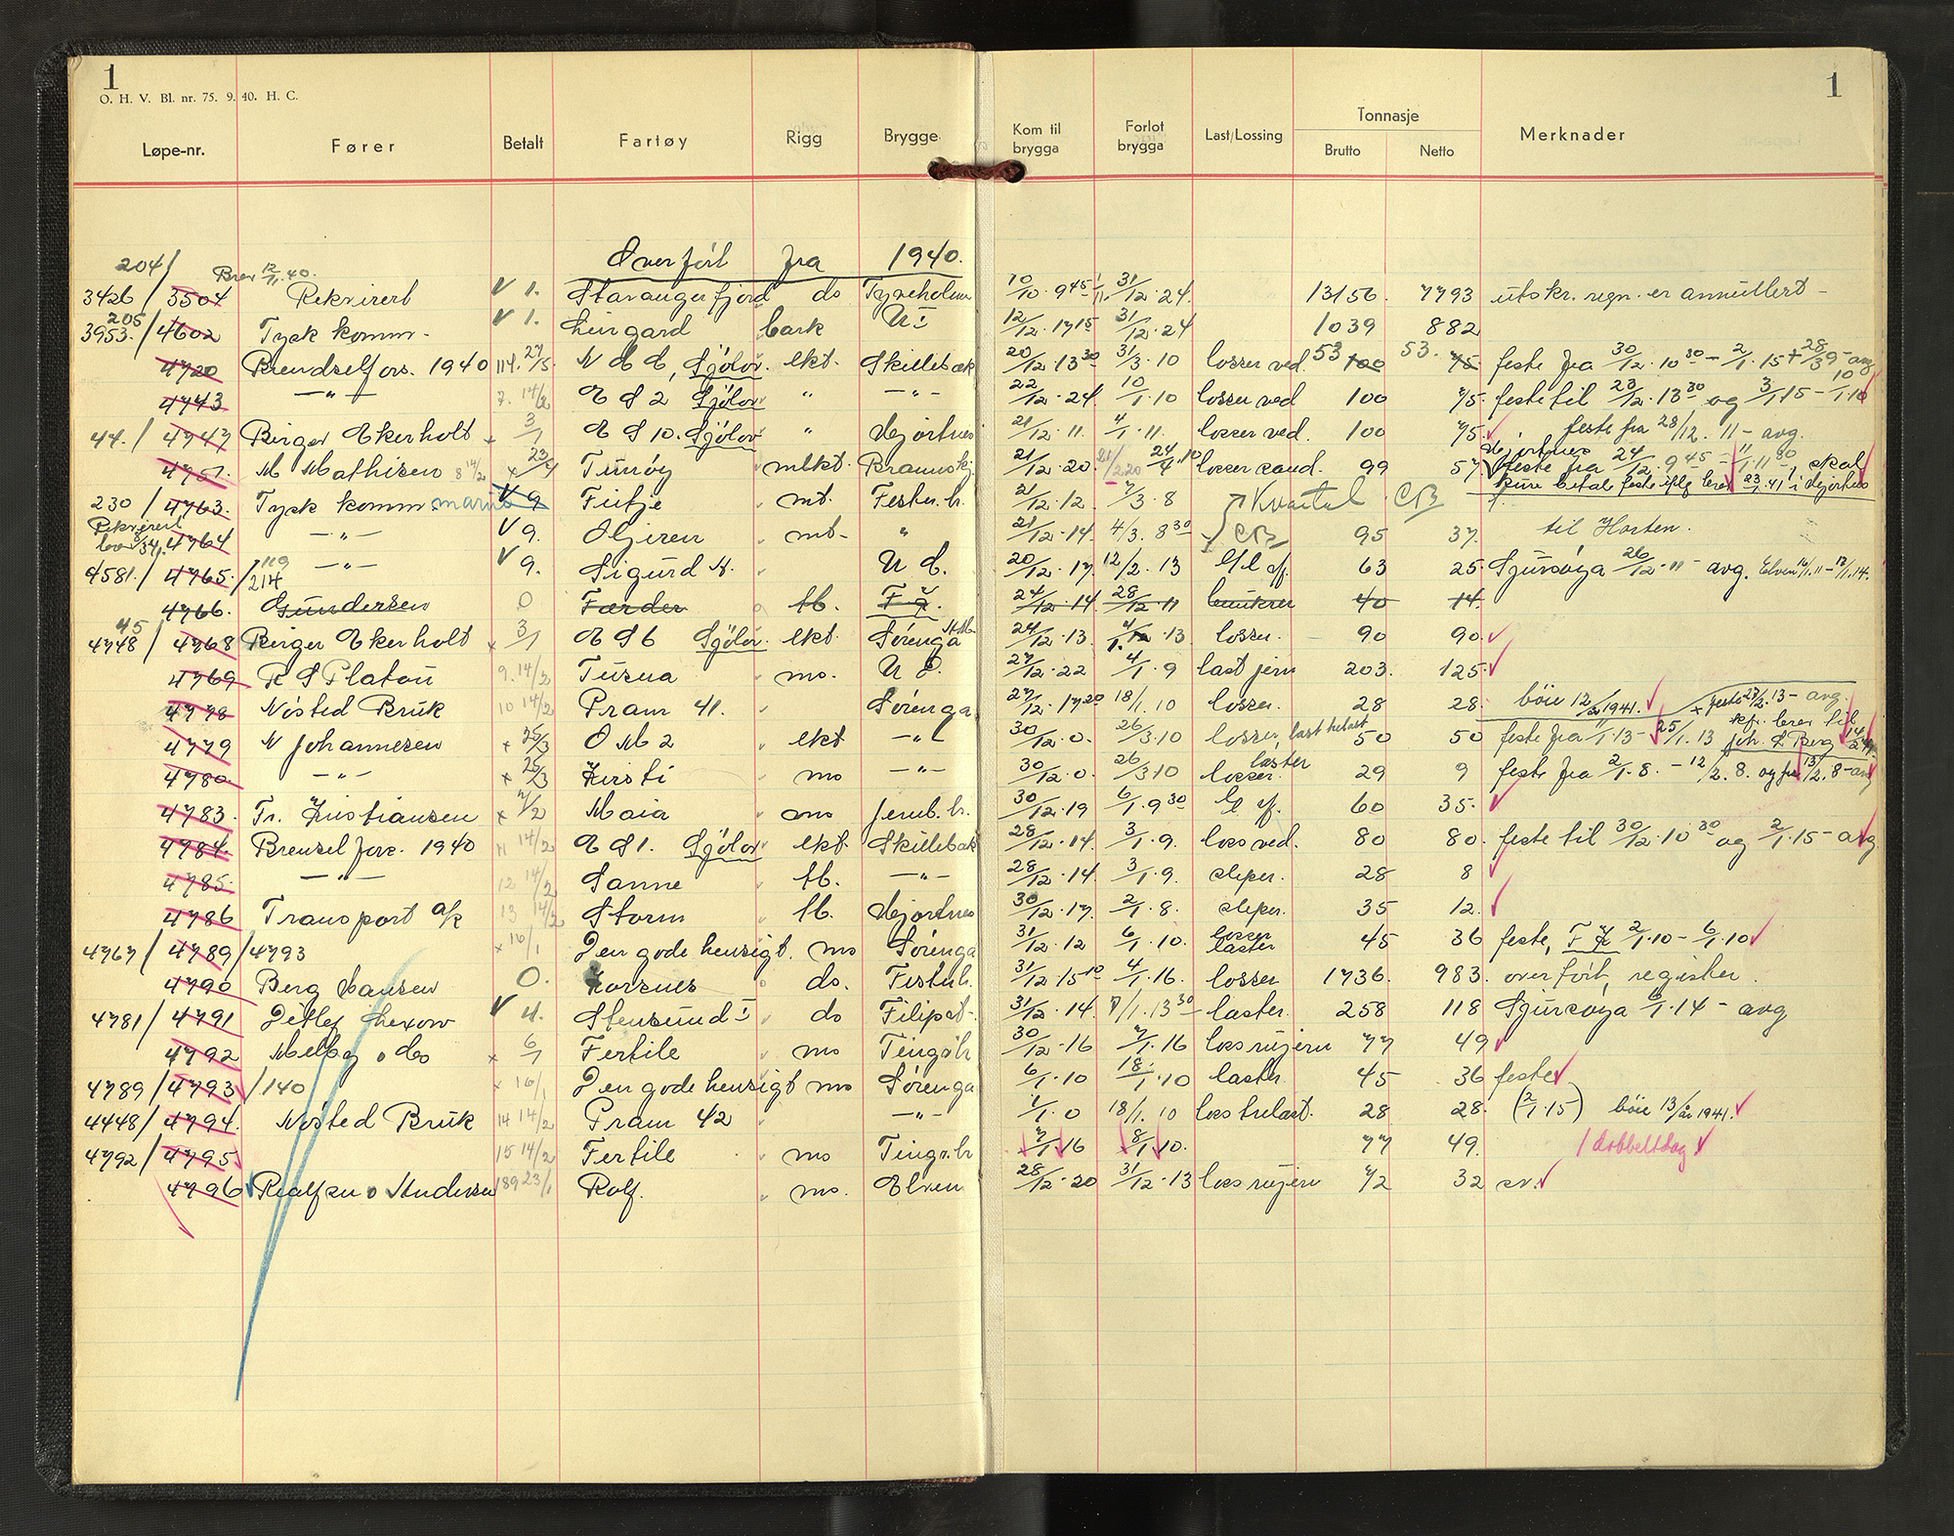 1
O. H. V. Bl. nr. 75. 9. 40. H. C.
1
Løpe-nr. Fører Betalt Fartøy Rigg Brygge Kom til brygga Forlot brygga Last/Lossing Tonnasje Brutto Netto Merknader
Overført fra 1940.
204/ Brev 12/11.40.
3426 / 3504 Rekvirert V 1. Stavangerfjord ds Tyveholmen 10/10 · 9 45 31/12 · 24 13156 7793 utskr. regn. er annullert -
205
3953. / 4602 Tysk komm. V 1. Lingard bark U I 12/12 · 17 15 31/12 · 24 1039 882
4720 Brendselfors. 1940 114. 27/5 lekt. Skillebæk 20/12 · 13 30 31/3 · 10 losser ved 53 100 53. 75 feste fra 30/12 · 10 30 - 2/1 · 15 + 28/3 9 - avg
4743 —„— 7. 14/2 E S 2 Sjølov „ „ - 22/12 · 24 10/1 · 10 losser ved 100 75. feste til 23/12 · 13 30 og 3/1 15 - 10/1 10
44. / 4747 Birger Ekerholt x 3/1 E S 10. Sjølov „ Hjortnes 21/12 · 11. 4/1 · 11. losser ved. 100 75. feste fra 28/12. 11 - avg.
4757. M Mathisen 8 14/2 x 23/4 Tunøy mlkt. Brannskj. 21/12 · 20. 24/4 · 10 losser sand. 99 57 Hjortnes feste fra 24/12 · 9 45 - 11/1 · 11 30, skal
kun betal feste iflg brev 23/1 41 i Hjortnes
230 / 4763. Tysk komm marine V 9 Fiitje mt. Festn. b. 21/12 · 12 7/3 · 8 Kvartal
Rekvirert
4764 —„— V 9. Oljeren mt. „ 21/12 · 14. 4/3. 8 30 95 37. til Horten.
4581. / 4765. / 119 214 —„— V 9. Sigurd K. U E. 20/12 · 17 12/2 · 13 63 25. Sjursøya 26/12 · 11 - avg. Elven 16/1 11 - 17/1. 14.
4766. Gundersen 0 Færder tb. 24/12 · 14 28/12 · 11 bunkrer 40 14.
45
4748 / 4768 Birger Ekerholt x 3/1 E S 6 Sjølov lekt. Sørenga 24/12 · 13. 13 losser. 90 90.
4769 R S Platou 9. 14/2 Tusna ms. U E. 27/12 · 22 4/1 · 9 last jern 203. 125.
4778 Nøsted Bruk 10 14/2 Pram 41. Sørenga 27/12 · 17 20 18/1. 10 losser. 28 28. bøie 12/ år 1941. x feste 27/2. 13 - avg.
4779 N Johannesen x 25/3 O M 2 lekt —„— 30/12 · 0. 26/3 · 10 losser, last betalt 50 50 feste fra 11/1 13 - 25/1. 13 kfr. brev til Joh. S. Berg 14/2 41
4780. —„— x 25/3 Kirsti ms —„— 30/12 · 0. 26/3 10 losser. laster 29 9 feste fra 2/1 · 8. - 12/2. 8. og fra 13/2. 8 - avg
4783. Fr. Kristiansen x 7/2 Maia ms Jernb. b. 30/12 · 19 6/1 · 9 30 60 35.
4784. Brensel fors. 1940 11 14/2 E S 1. Sjølov lekt. Skillebæk 28/12 · 14. 3/1 · 9. loss ved. 80 80. feste til 30/12 · 10 30 og 2/1 · 15 - avg
4785. —„— 12 14/2 Sanne tb. —„— 28/12 · 14. 3/1 · 9. sleper. 28 8
4786 Transport a/s 13 14/2 Storm tb. Hjortnes 30/12 · 17. 2/1 · 8. sleper. 35 12.
4767 / 4789 / 4793 x 16/1 Den gode hensigt. ms Sørenga 31/12 · 12 6/1 · 10. losser laster 45 36 feste, 2/1 · 10 - 6/1 · 10
4790 Berg Hansen 0. Korsnes ds. Festn. b. 31/12 · 15 10 4/1 · 16. losser 1736. 983. overført, register
4781 / 4791 Ditlef Thexow V 4. Stensund I ds Filipst. 31/12 · 14. 7/1. 13 30 laster. 258 118 Sjursøya 6/1 · 14 - avg
4792 Melby o do x 6/1 Fertile ms Tingv. b. 30/12 · 16 7/1 · 16 loss rujern 77 49
4789 / 4793 / 140 x 16/1 Den gode hensigt ms Sørenga 6/1 · 10 18/1 · 10 laster. 45 36 feste
4448 / 4794. Nøsted Bruk 14 14/2 Pram 42 —„— 1/1 · 0 18/1. 10 loss trelast. 28 28. (2/1 · 15) bøie 13/ år 1941.
4792 / 4795. 15 14/2 Fertile ms Tingv. b 7/1 · 16 8/1 · 10. 77 49. 1 dobbeltdag
4796 Roalfsen o Andersen 189 23/1 Rolf. ms. Elven 28/12 · 20 31/12 · 13 loss rujern 72 32 sv.